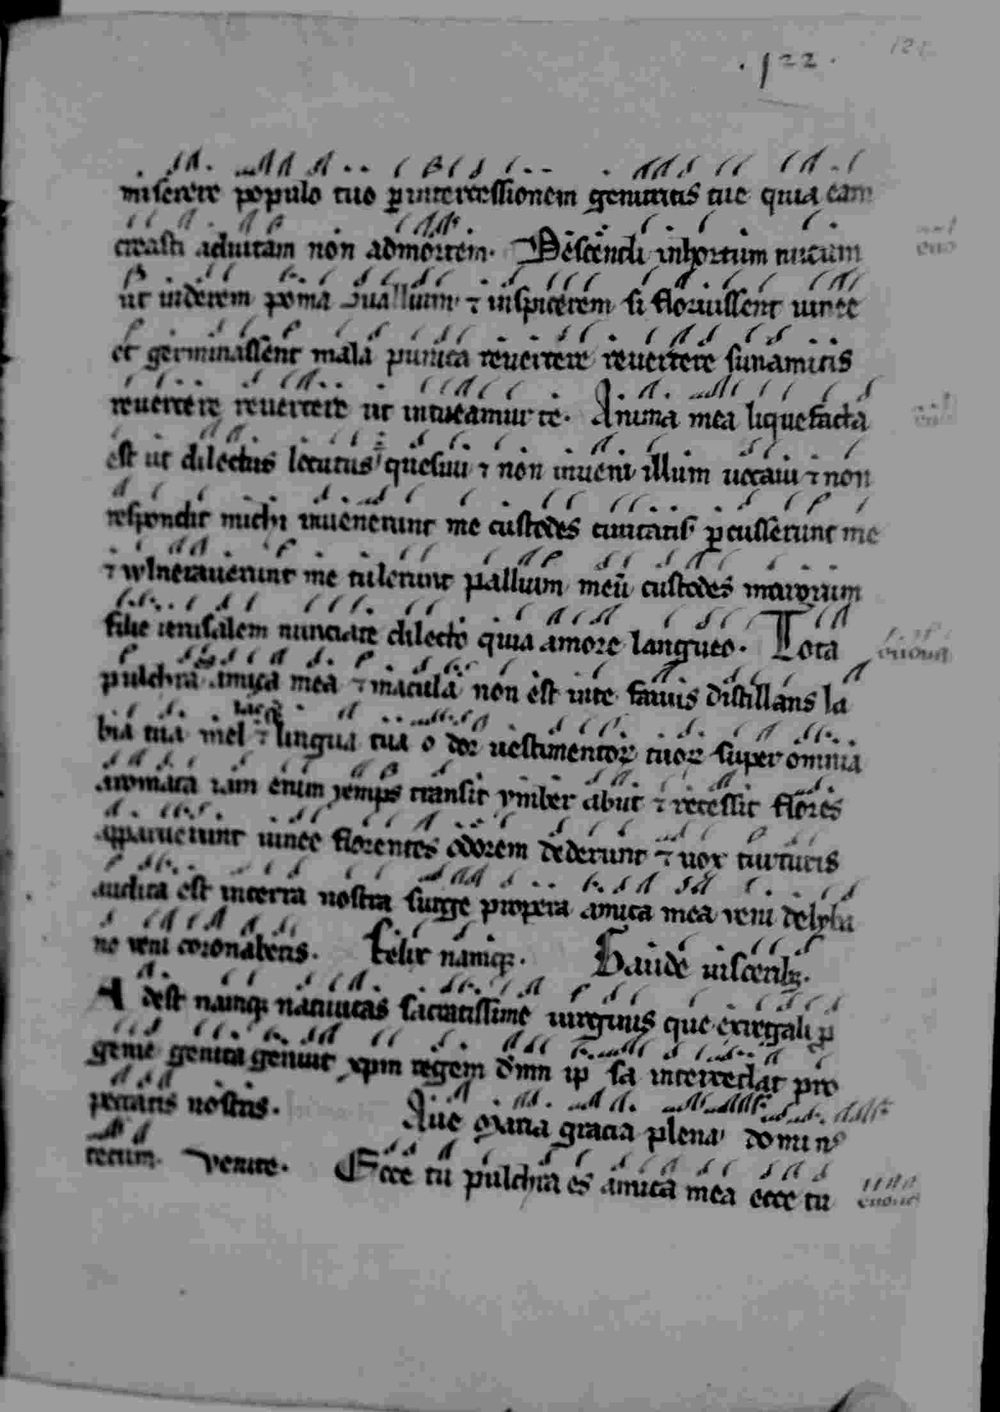 .122. 122
miserere populo tuo p intercessionem genitricis tue quia eam
creasti aduitam non admortem. Descendi inhortum nucum
ut uiderem poma uallium ⁊ inspicerem si floruissent uinee
et germinassent mala punica reuertere reuertere sunamitis
reuertere reuertere ut intueamur te. Anima mea liquefacta
est ut dilectus locutus quesiui ⁊ non inueni illum uocaui ⁊ non
respondit michi inuenerunt me custodes ciuitatis pcusserunt me
⁊ wlnerauerunt me tulerunt pallium meū custodes murorum
filie ierusalem nunciate dilecto quia amore langueo. Tota
pulchra amica mea ⁊ macula non est inte fauus distillans la
bia tua mel ⁊ lingua tua odor uestimentoꝝ tuoꝝ super omnia
aromata iam enim yemps transiit ymber abiit ⁊ recessit flores
apparuerunt uinee florentes odorem dederunt ⁊ uox turturis
audita est interra nostra surge propera amica mea ueni delyba
no ueni coronaberis. Felix namqꝫ. Gaude
Adest namqꝫ natiuitas sacratissime uirginis que exregali p
genie genita genuit xpm regem dnm ip sa intercedat pro
peccatis nostris. Aue maria gracia plena dominꝰ
tecum. Venite. Ecce tu pulchra es amica mea ecce tu